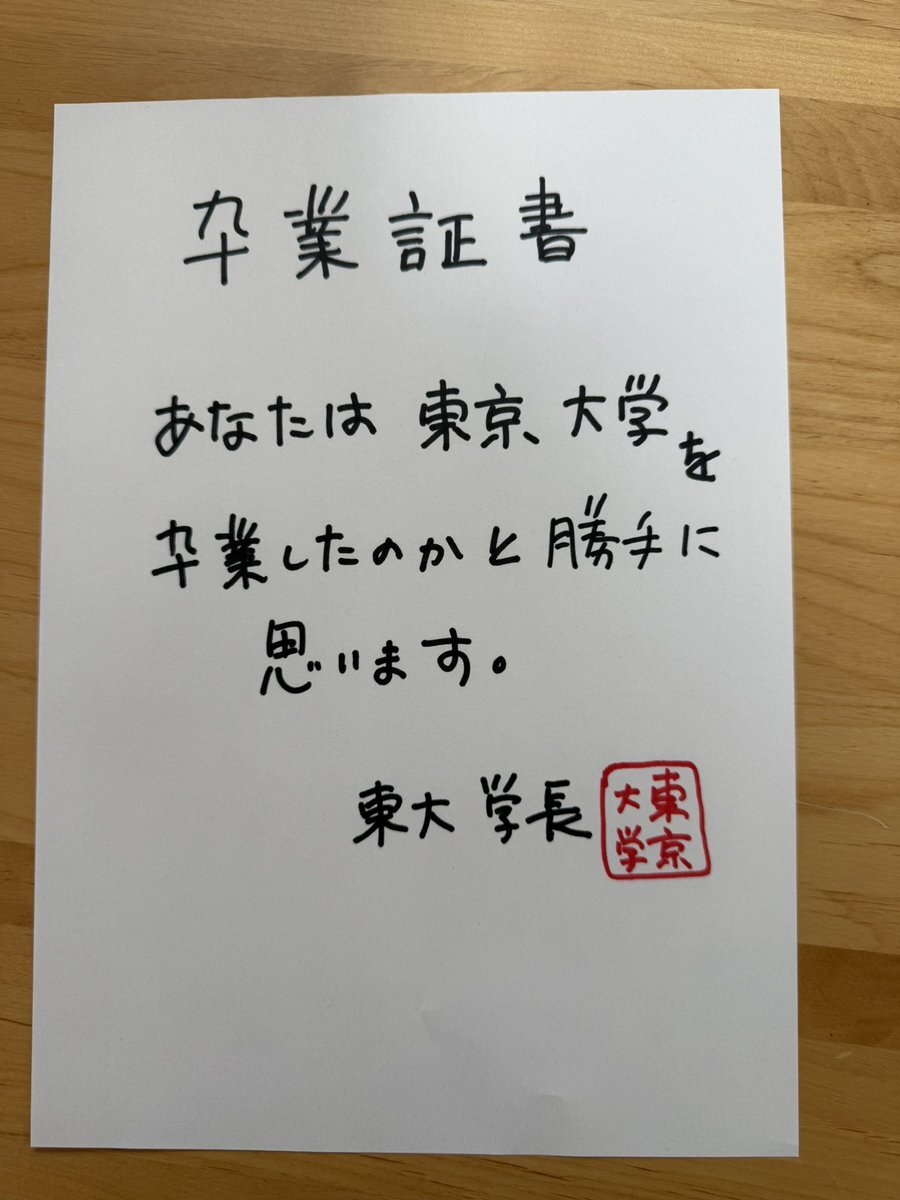 卆業証書
あなたは東京大学を
卆業したのかと勝手に
思います。
東大学長
東京
大学